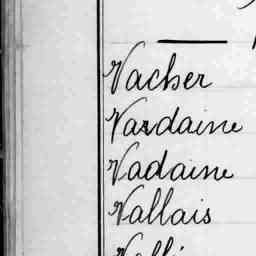 Vacher
Vardaine
Vadaine
Vallais